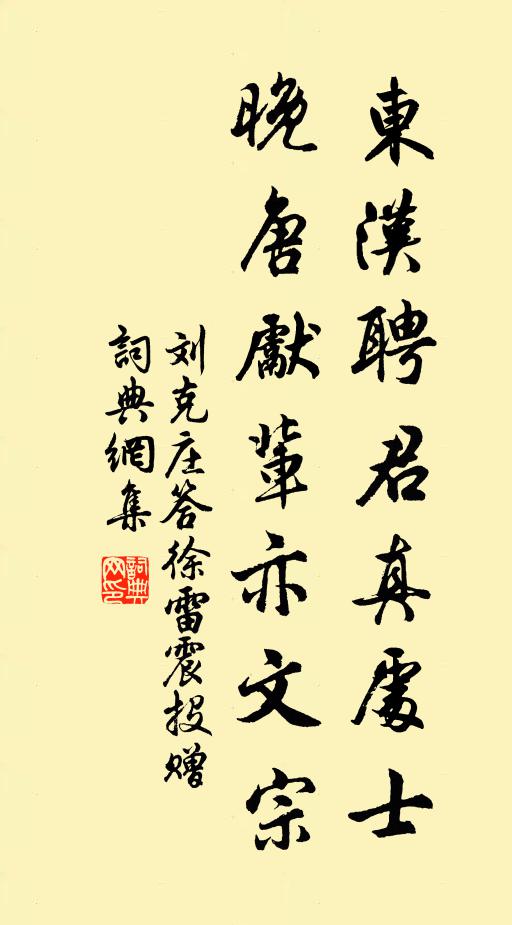 東漢聘君真處士
晚唐獻輩亦文宗
刘克庄答徐雷震投赠
詞典網集
詞典
网印